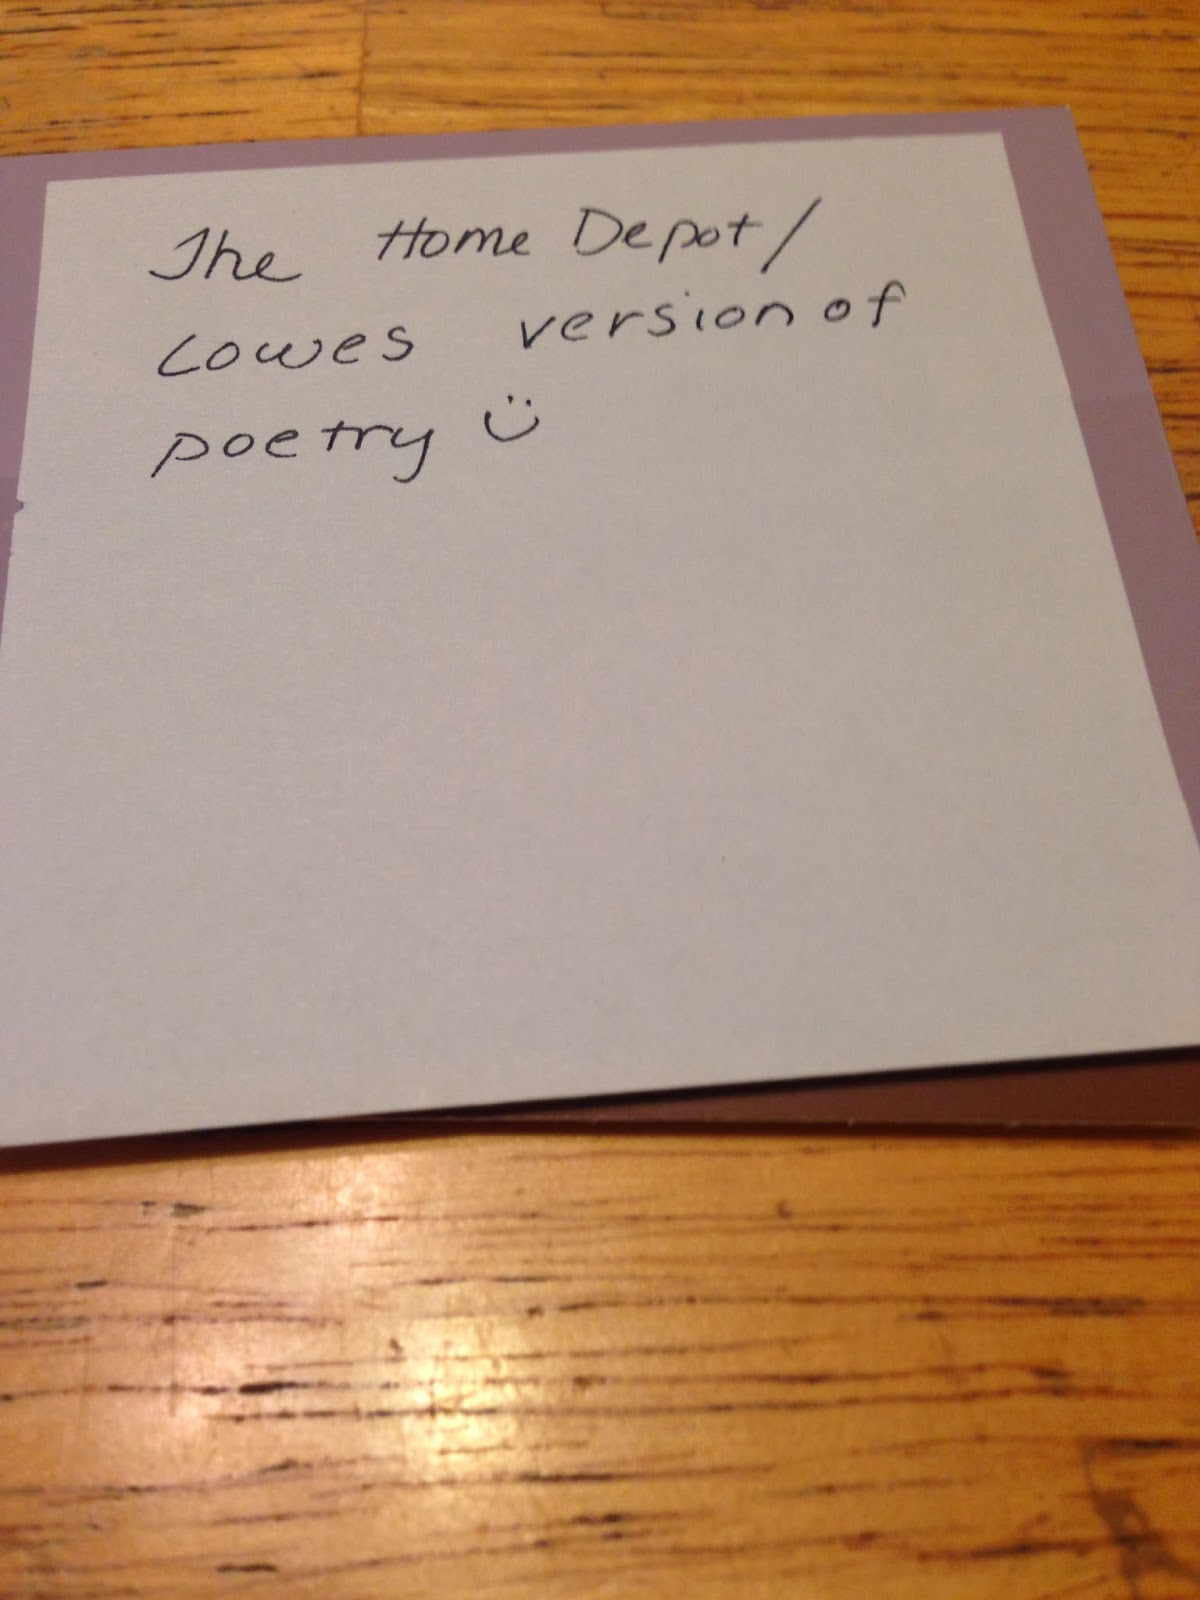 The Home Depot/
Lowes version of
poetry :)